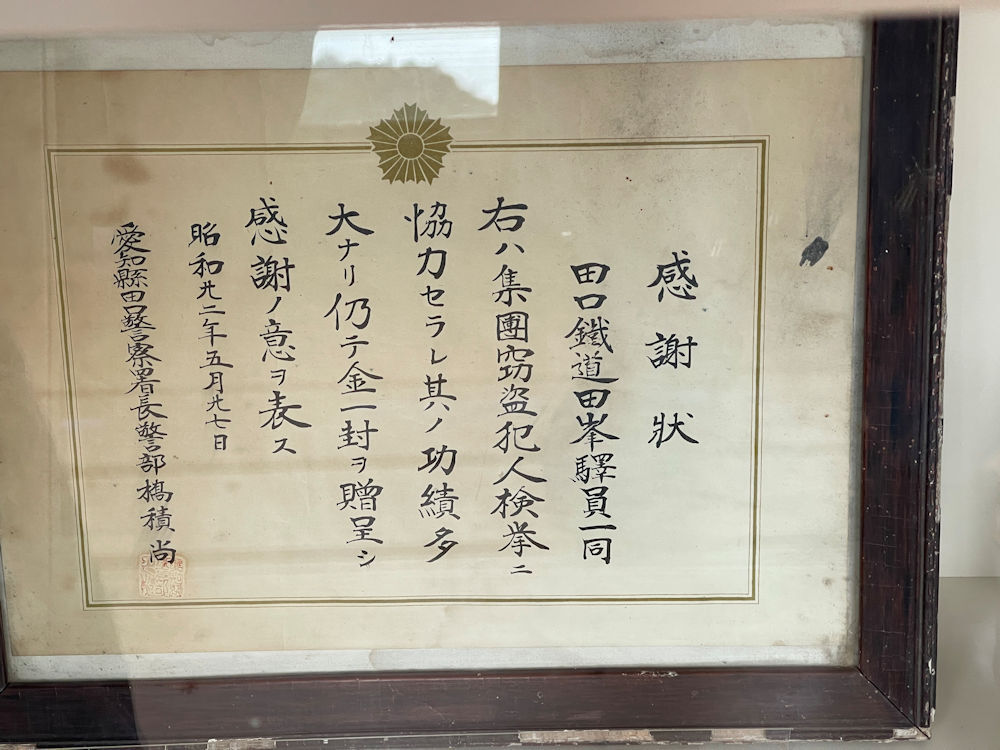 感謝狀
田口鐵道田峯驛員一同
右ハ集團窃盗犯人検挙ニ
協力セラレ其ノ功績多
大ナリ仍テ金一封ヲ贈呈シ
感謝ノ意ヲ表ス
昭和廿二年五月廿七日
愛知縣田口警察署長警部橋積尚